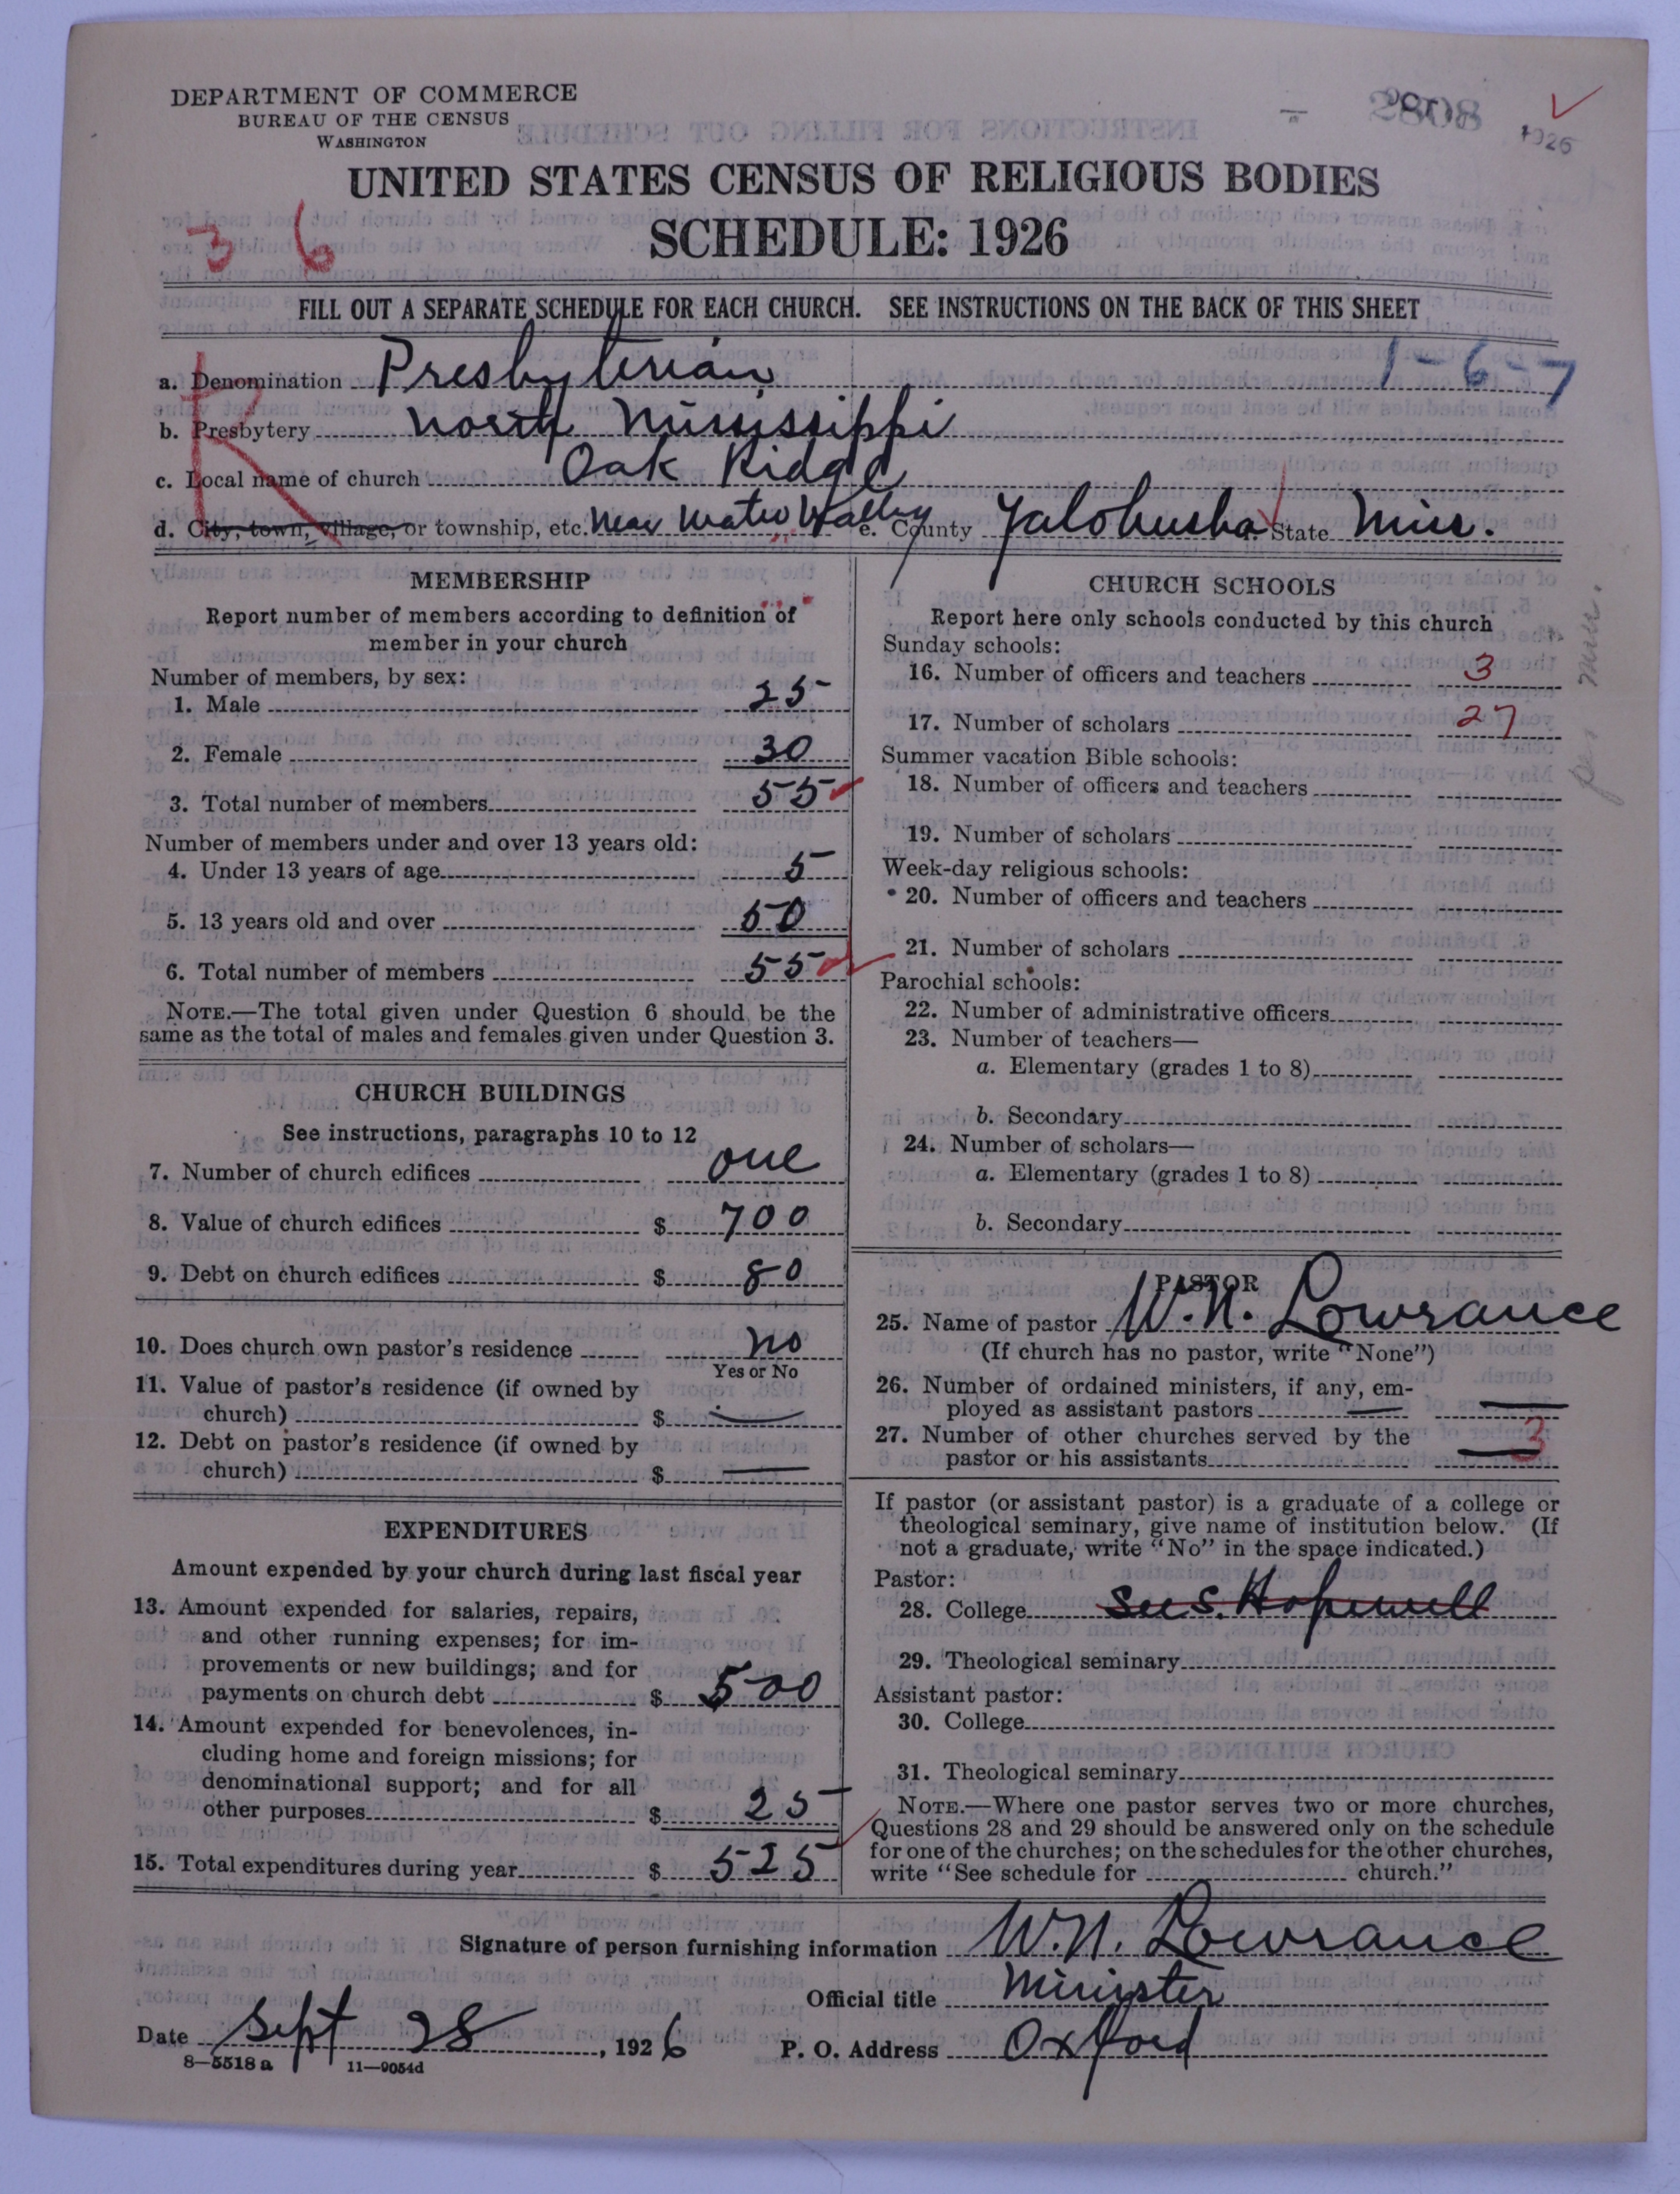 DEPARTMENT OF COMMERCE
BUREAU OF THE CENSUS
WASHINGTON
2808
1926
UNITED STATES CENSUS OF RELIGIOUS BODIES
SCHEDULE: 1926
3 6
FILL OUT A SEPARATE SCHEDULE FOR EACH CHURCH. SEE INSTRUCTIONS ON THE BACK OF THIS SHEET
1-6-7
R
a. Denomination Presbyterian
b. Presbytery North Mississippi
c. Local name of church Oak Ridge
d. City, town, village, or township, etc. Near Water Valley e. County Yalobusha State Miss.
MEMBERSHIP
Report number of members according to definition of
member in your church
Number of members, by sex:
1. Male 25
2. Female 30
3. Total number of members 55
Number of members under and over 13 years old:
4. Under 13 years of age 5
5. 13 years old and over 50
6. Total number of members 55
NOTE.—The total given under Question 6 should be the
same as the total of males and females given under Question 3.
CHURCH BUILDINGS
See instructions, paragraphs 10 to 12
7. Number of church edifices one
8. Value of church edifices $ 700
9. Debt on church edifices $ 80
10. Does church own pastor's residence No
Yes or No
11. Value of pastor's residence (if owned by
church) $ —
12. Debt on pastor's residence (if owned by
church) $ —
EXPENDITURES
Amount expended by your church during last fiscal year
13. Amount expended for salaries, repairs,
and other running expenses; for im-
provements or new buildings; and for
payments on church debt $ 500
14. Amount expended for benevolences, in-
cluding home and foreign missions; for
denominational support; and for all
other purposes $ 25
15. Total expenditures during year $ 525
CHURCH SCHOOLS
Report here only schools conducted by this church
Sunday schools:
16. Number of officers and teachers 3
17. Number of scholars 27
Summer vacation Bible schools:
18. Number of officers and teachers
19. Number of scholars
Week-day religious schools:
20. Number of officers and teachers
21. Number of scholars
Parochial schools:
22. Number of administrative officers
23. Number of teachers—
a. Elementary (grades 1 to 8)
b. Secondary
24. Number of scholars—
a. Elementary (grades 1 to 8)
b. Secondary
PASTOR
25. Name of pastor W. N. Lowrance
(If church has no pastor, write "None")
26. Number of ordained ministers, if any, em-
ployed as assistant pastors —
27. Number of other churches served by the
pastor or his assistants 3
If pastor (or assistant pastor) is a graduate of a college or
theological seminary, give name of institution below. (If
not a graduate, write "No" in the space indicated.)
Pastor:
28. College See S. Hopewell
29. Theological seminary
Assistant pastor:
30. College
31. Theological seminary
NOTE.—Where one pastor serves two or more churches,
Questions 28 and 29 should be answered only on the schedule
for one of the churches; on the schedules for the other churches,
write "See schedule for church."
per min.
Signature of person furnishing information W. N. Lowrance
Official title Minister
Date Sept 28, 1926 P. O. Address Oxford
8—5518 a 11—9054d